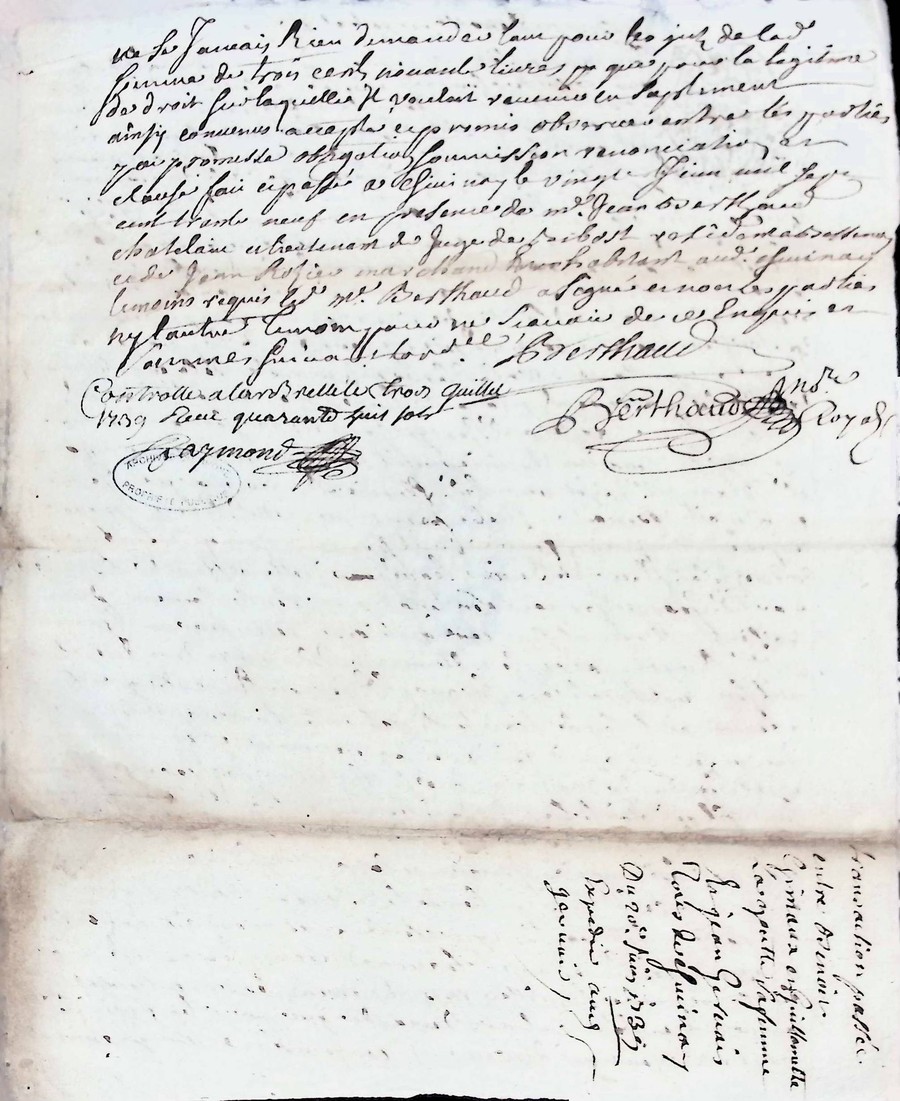 ne se Jamais Rien demander tant pour les de lad
somme de trois cents nonante livres que pour la legitime
de droit sur laquellie Jl voulait revenir en Suplement
ainsy convenus accepté et promis observer entre les parties
par promesse obligation soummission renonciation et
clause fait et passé a Chuinay le vingt Juin mil sept
cent trante neuf en presence de mr. Jean Berthaud
chatelain et lieutenant de Juge de residant a
et de Jean Rosier marchand habitant aud. Chuinay
temoins requis led. mr. Berthaud a signé et non les parties
ny lautre temoin pour ne scavoir de ce Enquis et
sommés suivant lord.ce Berthaud
Controlle a le trois Juillet
1739 Receu quarante huit sols
Raymond
Berthaud no.re Royal
ARCHIVES
PROPRIÉTÉ PUBLIQUE
transaction passée
entre Benoit
Giraux et Guillemette
sa femme
Et jean Gervais
de Chuinay
Du 20e. Juin 1739
Expedié aud
gervais